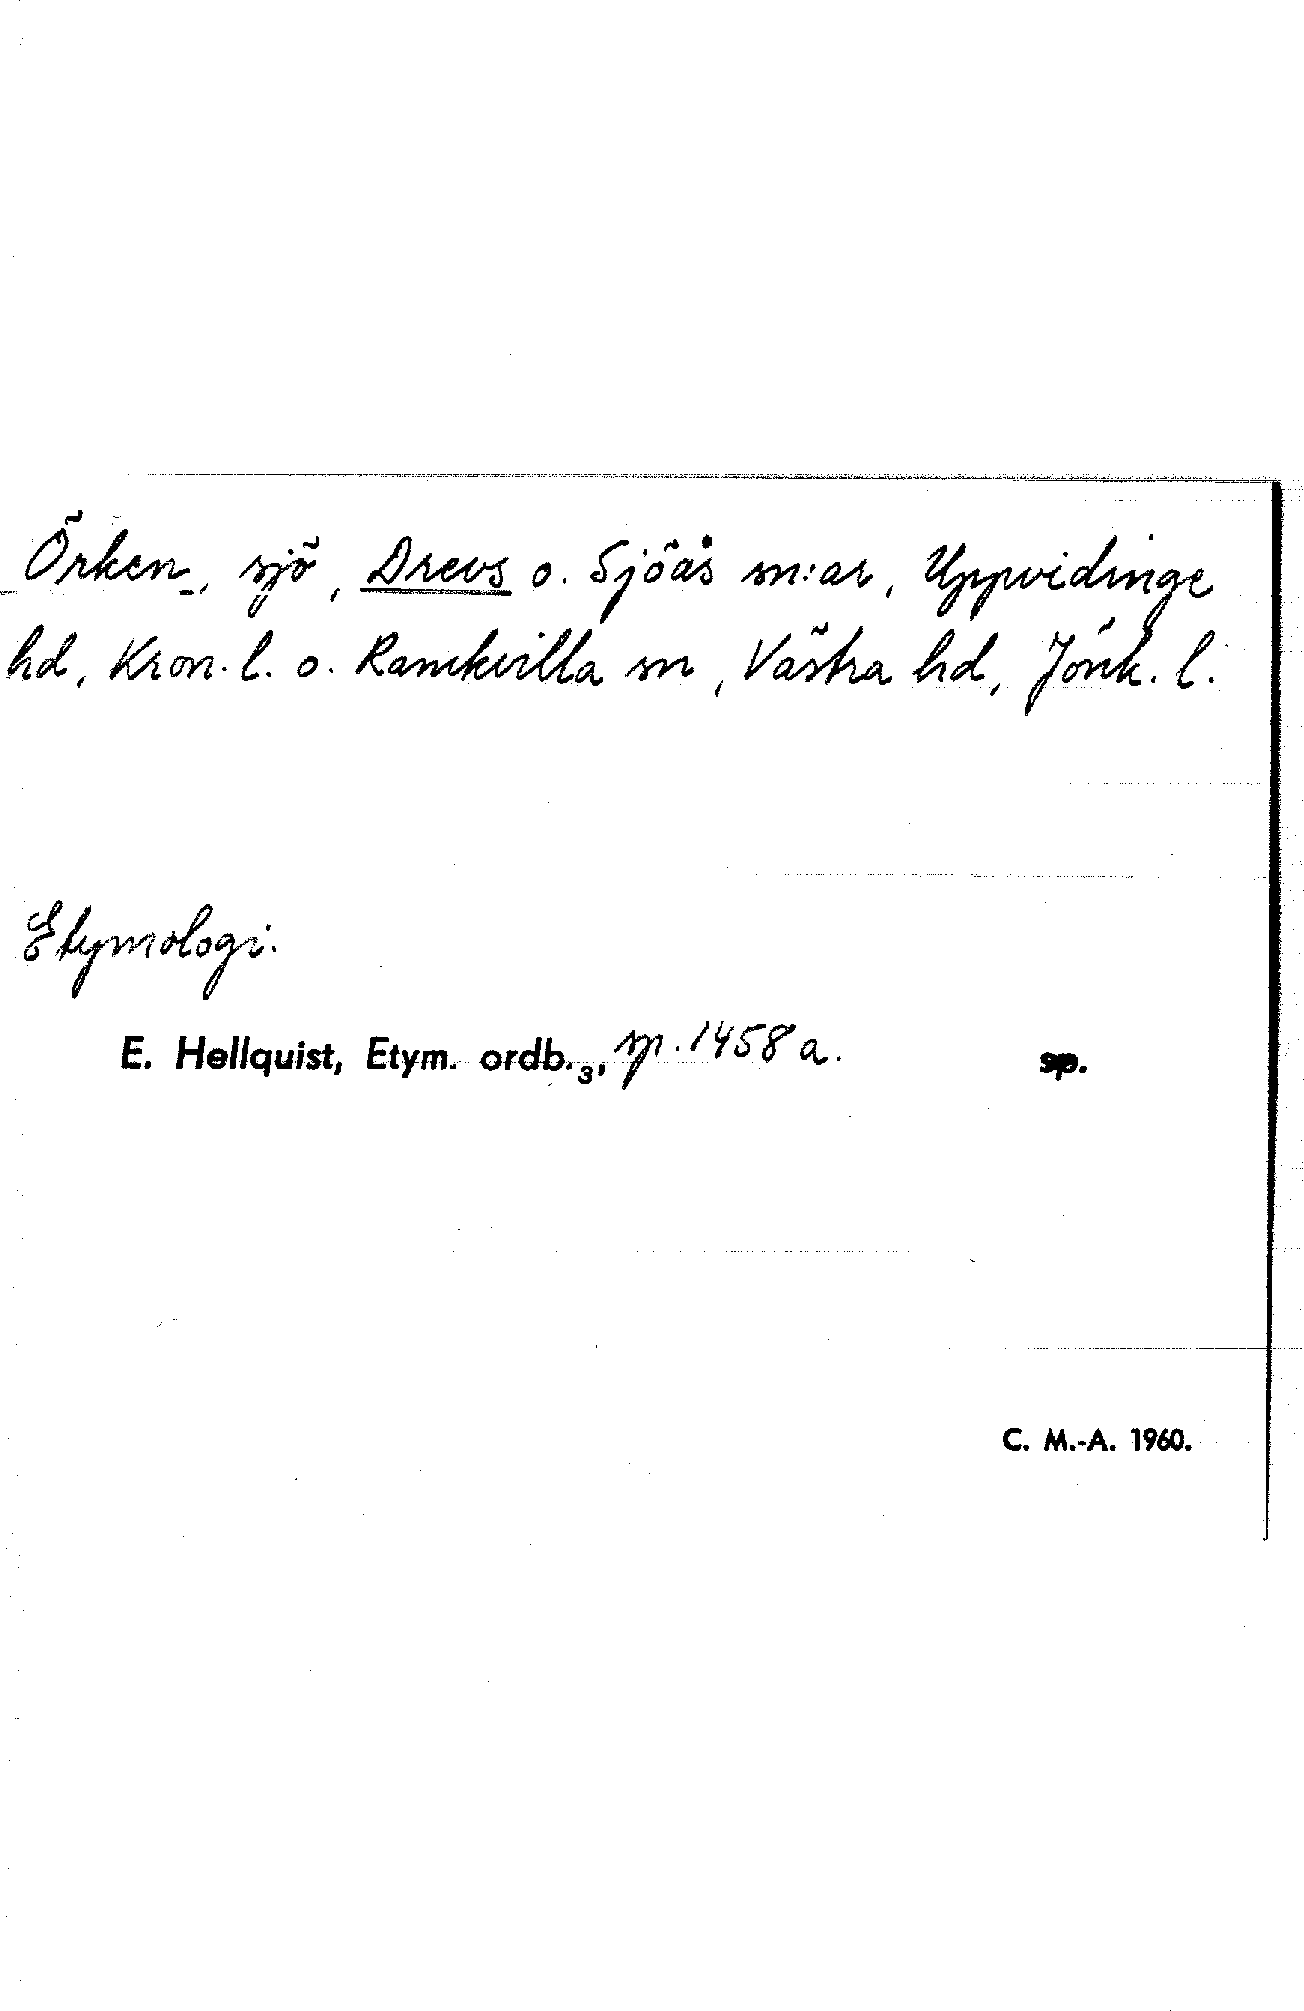 Örken, sjö, Drevs o. Sjöås sn:ar, Uppvidinge
hd, Kron. l. o. Ramkvilla sn, Västra hd, Jönk. l.
Etymologi.
E. Hellquist, Etym. ordb.₃, sp. 1458 a. sp.
C. M.-A. 1960.